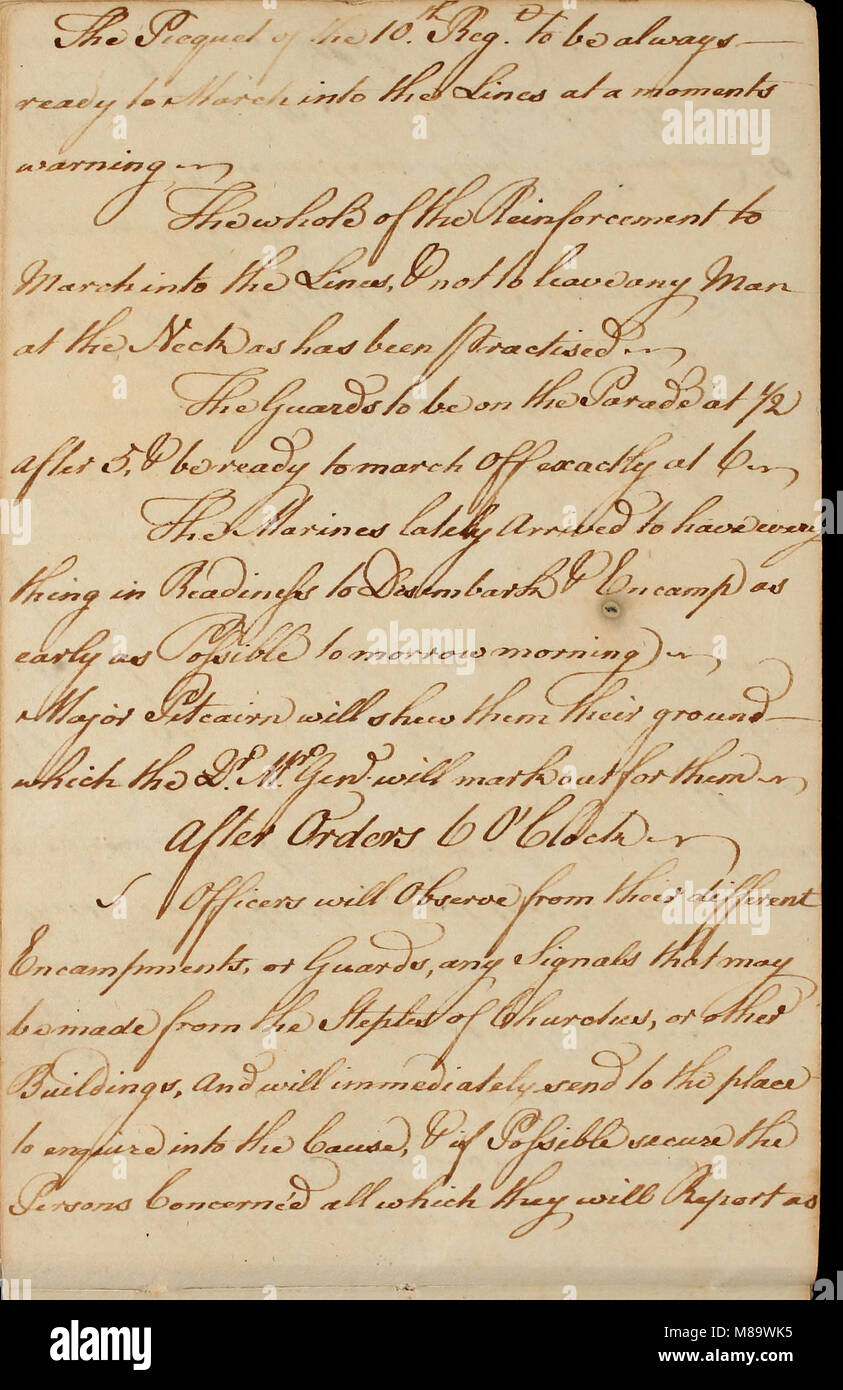 The Picquet of the 10th. Regt. to be always
ready to March into the Lines at a moments
warning
The whole of the Reinforcement to
March into the Lines, & not to leave any Man
at the Neck as has been practised
The Guards to be on the Parade at 1/2
after 5, & be ready to march off exactly at 6
The Marines lately Arrived to have every
thing in Readiness to Disembark & Encamp as
early as Possible tomorrow morning
Major Pitcairn will shew them their ground
which the Qr. Mr. Genl. will mark out for them
After Orders 6 O'Clock
Officers will Observe from their different
Encampments, or Guards, any Signals that may
be made from the Steples of Churches, or other
Buildings, And will immediately send to the place
to enquire into the Cause, & if Possible secure the
Persons Concern'd all which they will Report as
alamy
Image ID: M89WK5
www.alamy.com